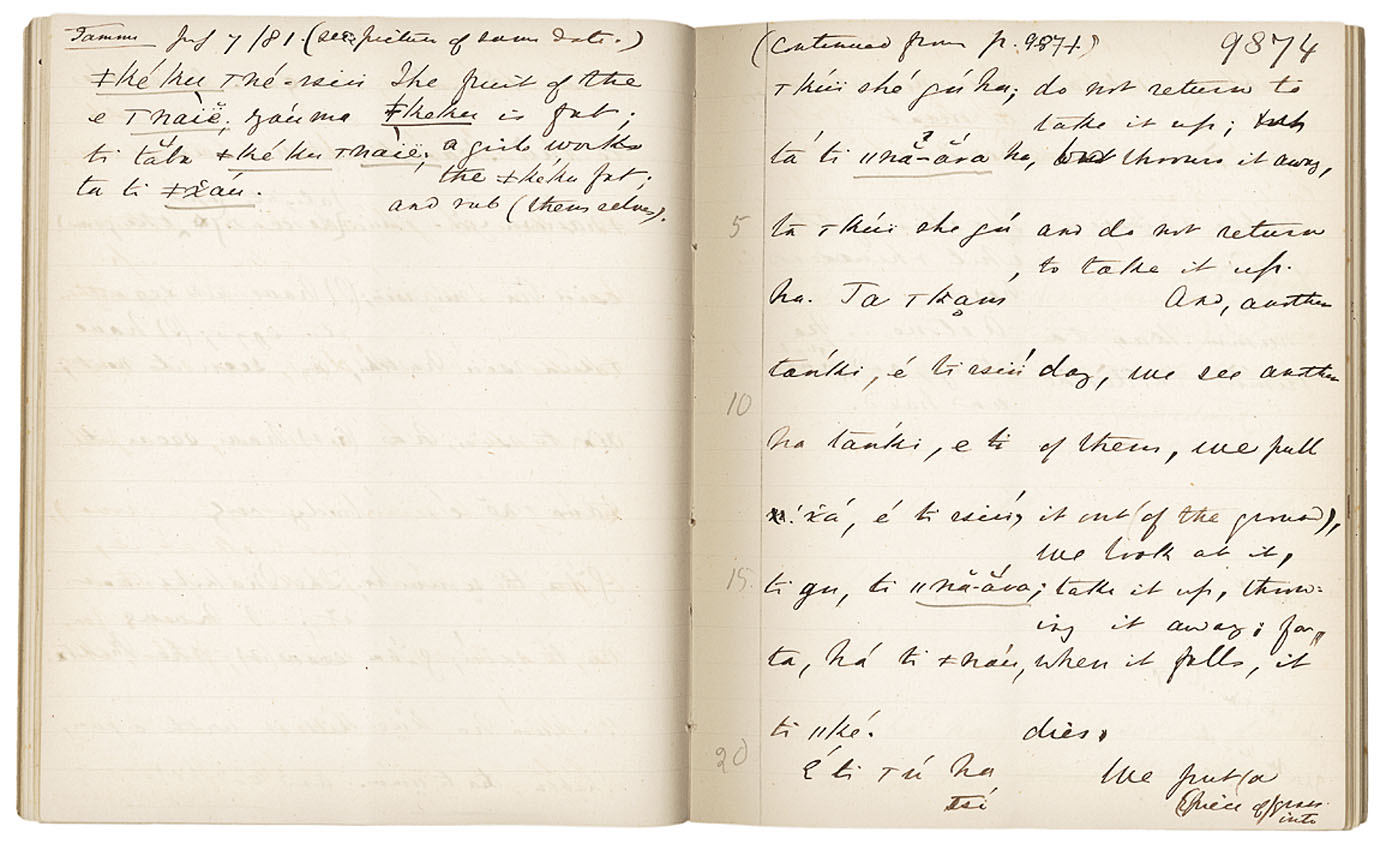 Tamme July 7/81. (see picture of same date.)
ǂkéku ꞱnéꞋ-rsin The fruit of the
e Ʇnaië; gáuma ǂkeku is fat;
ti tăba ǂkéku Ʇnaië; a girl works
the ǂkéku fat;
ta ti ǂx̌áu. and rub (themselves).
(Continued from p. 987½) 9874
Ʇkúï shé gú ha; do not return to
take it up;
tá ti ǁnă-ăra ha, but throws it away,
5 ta Ʇkúï she gú and do not return
, to take it up.
ha. Ta Ʇkaṇ́ And, another
tánki, é ti rsiń day, we see another
10
ha tánki, e ti of them, we pull
x̌á, é ti rsiń, it out (of the ground),
we look at it,
15 ti gu, ti ǁnă-ăra; take it up, throw-
ing it away; for,
ta, há ti ǂnáu, when it falls, it
ti ǁké. dies.
20 É ti Ʇú ha We put (a
tsí piece of) grass
into